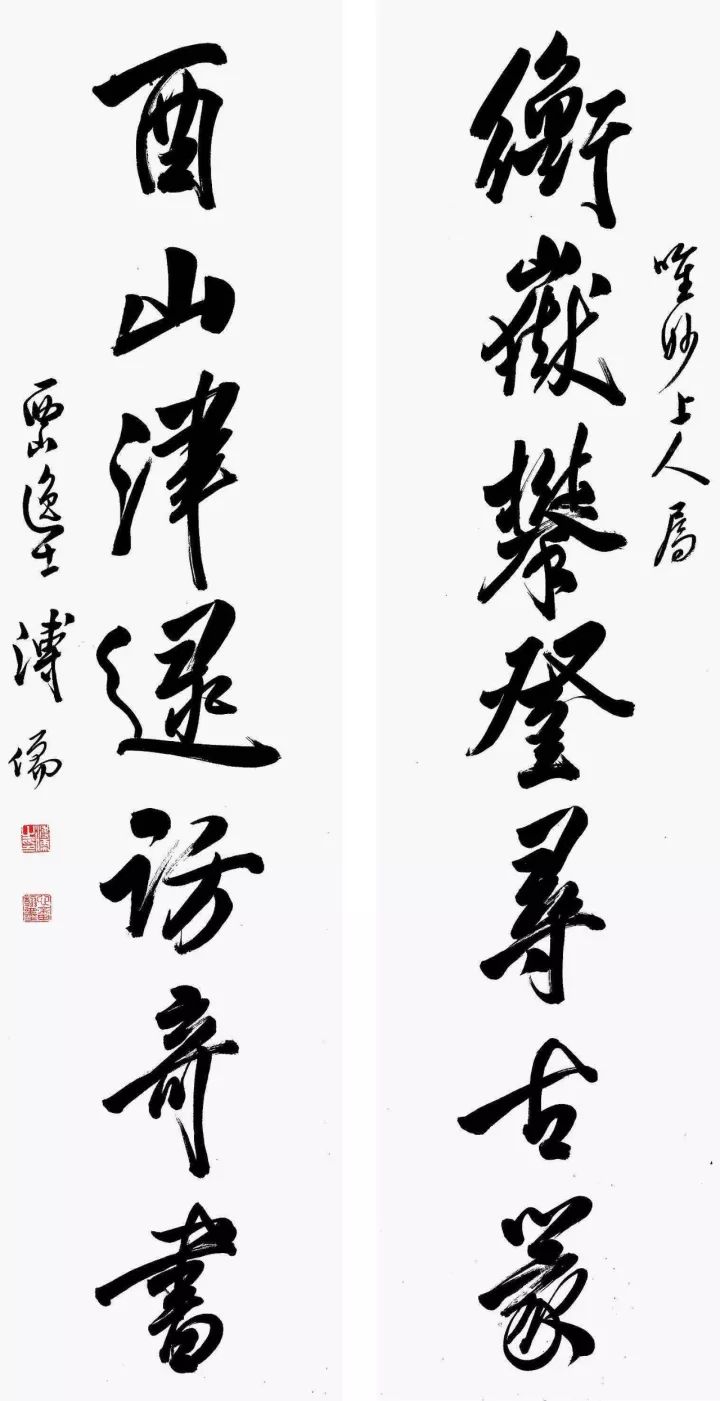 唯妙上人屬
衡嶽攀登尋古篆
酉山津逮訪奇書
西山逸士 溥儒